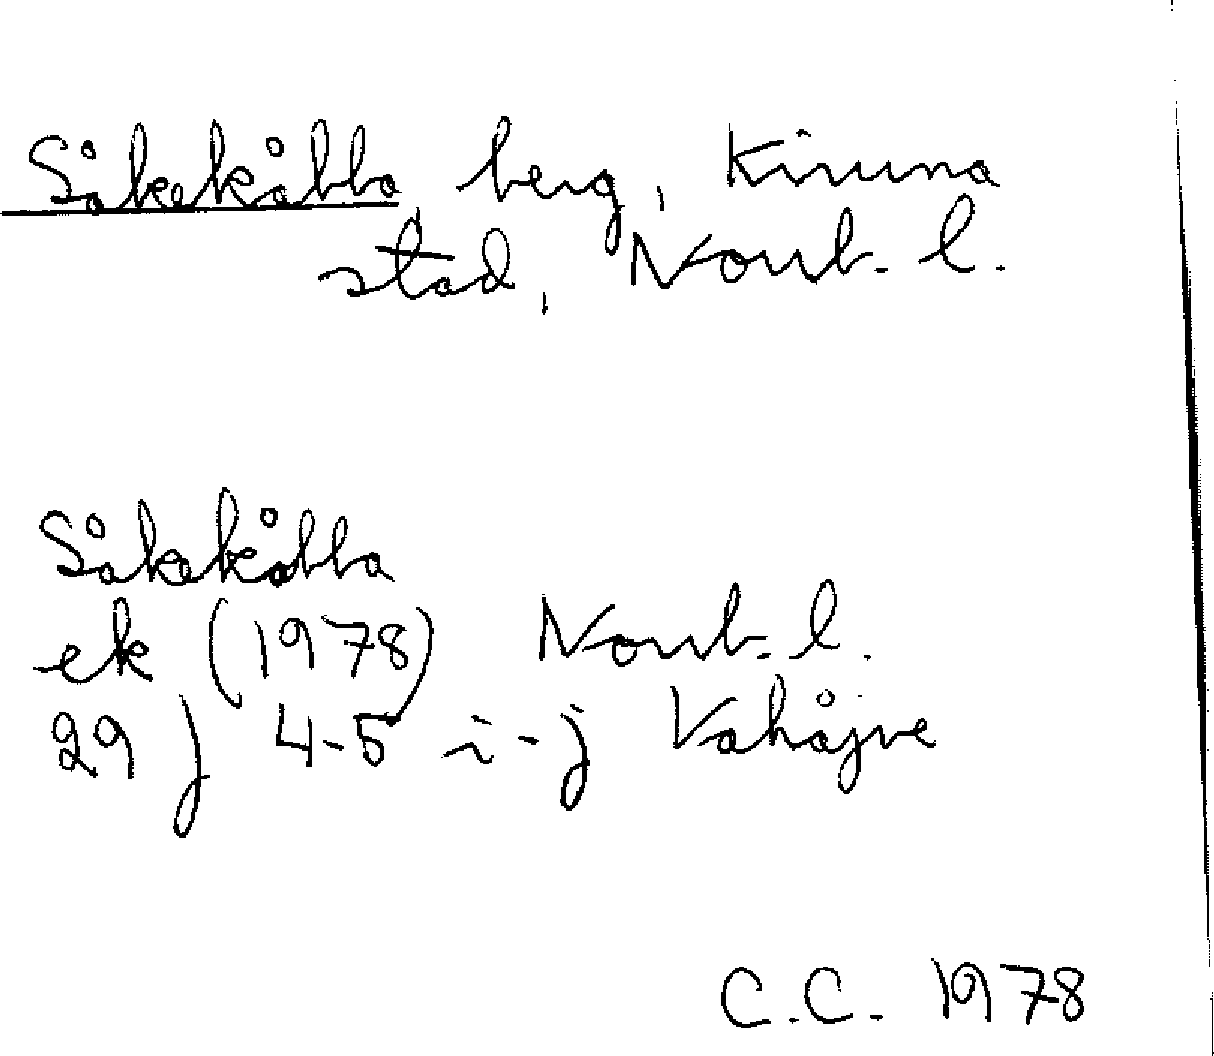 Såkekåbba berg, Kiruna
stad, Norrb. l.
Såkekåbba
ek (1978) Norrb. l.
29 J 4-5 i-j Vahåjve
C.C. 1978